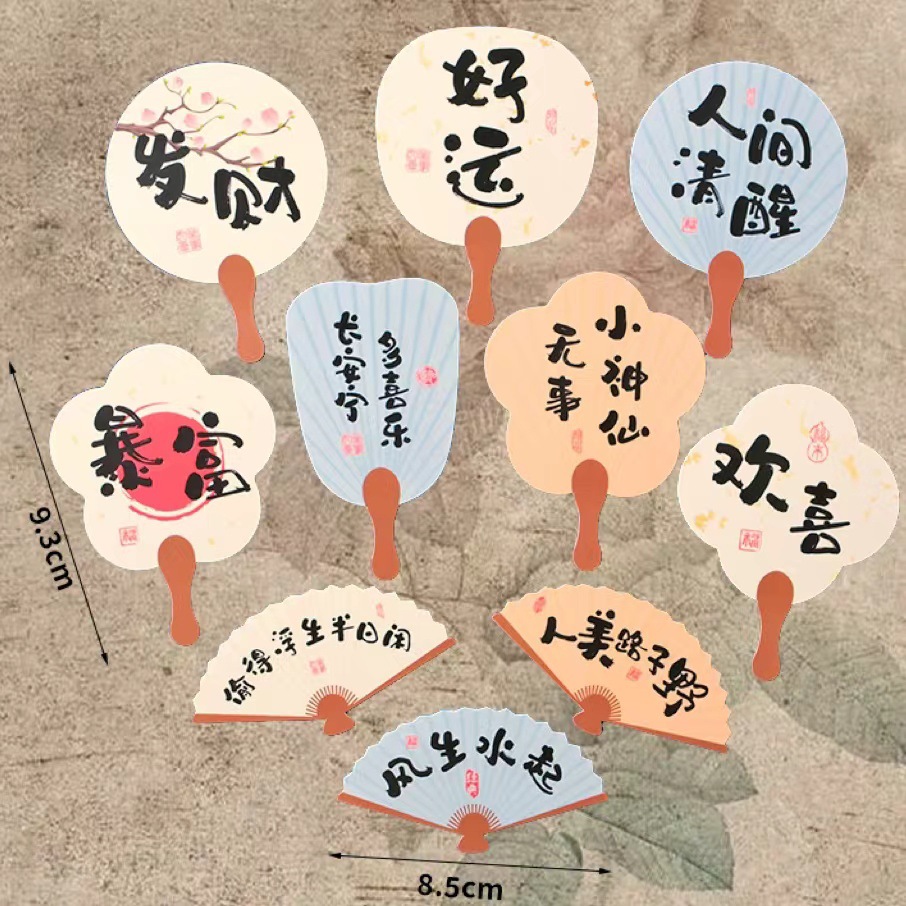 发财
好
运
人间
清醒
暴富
长安宁
多喜乐
小神仙
无事
欢喜
偷得浮生半日闲
人美路子野
风生水起
9.3cm
8.5cm